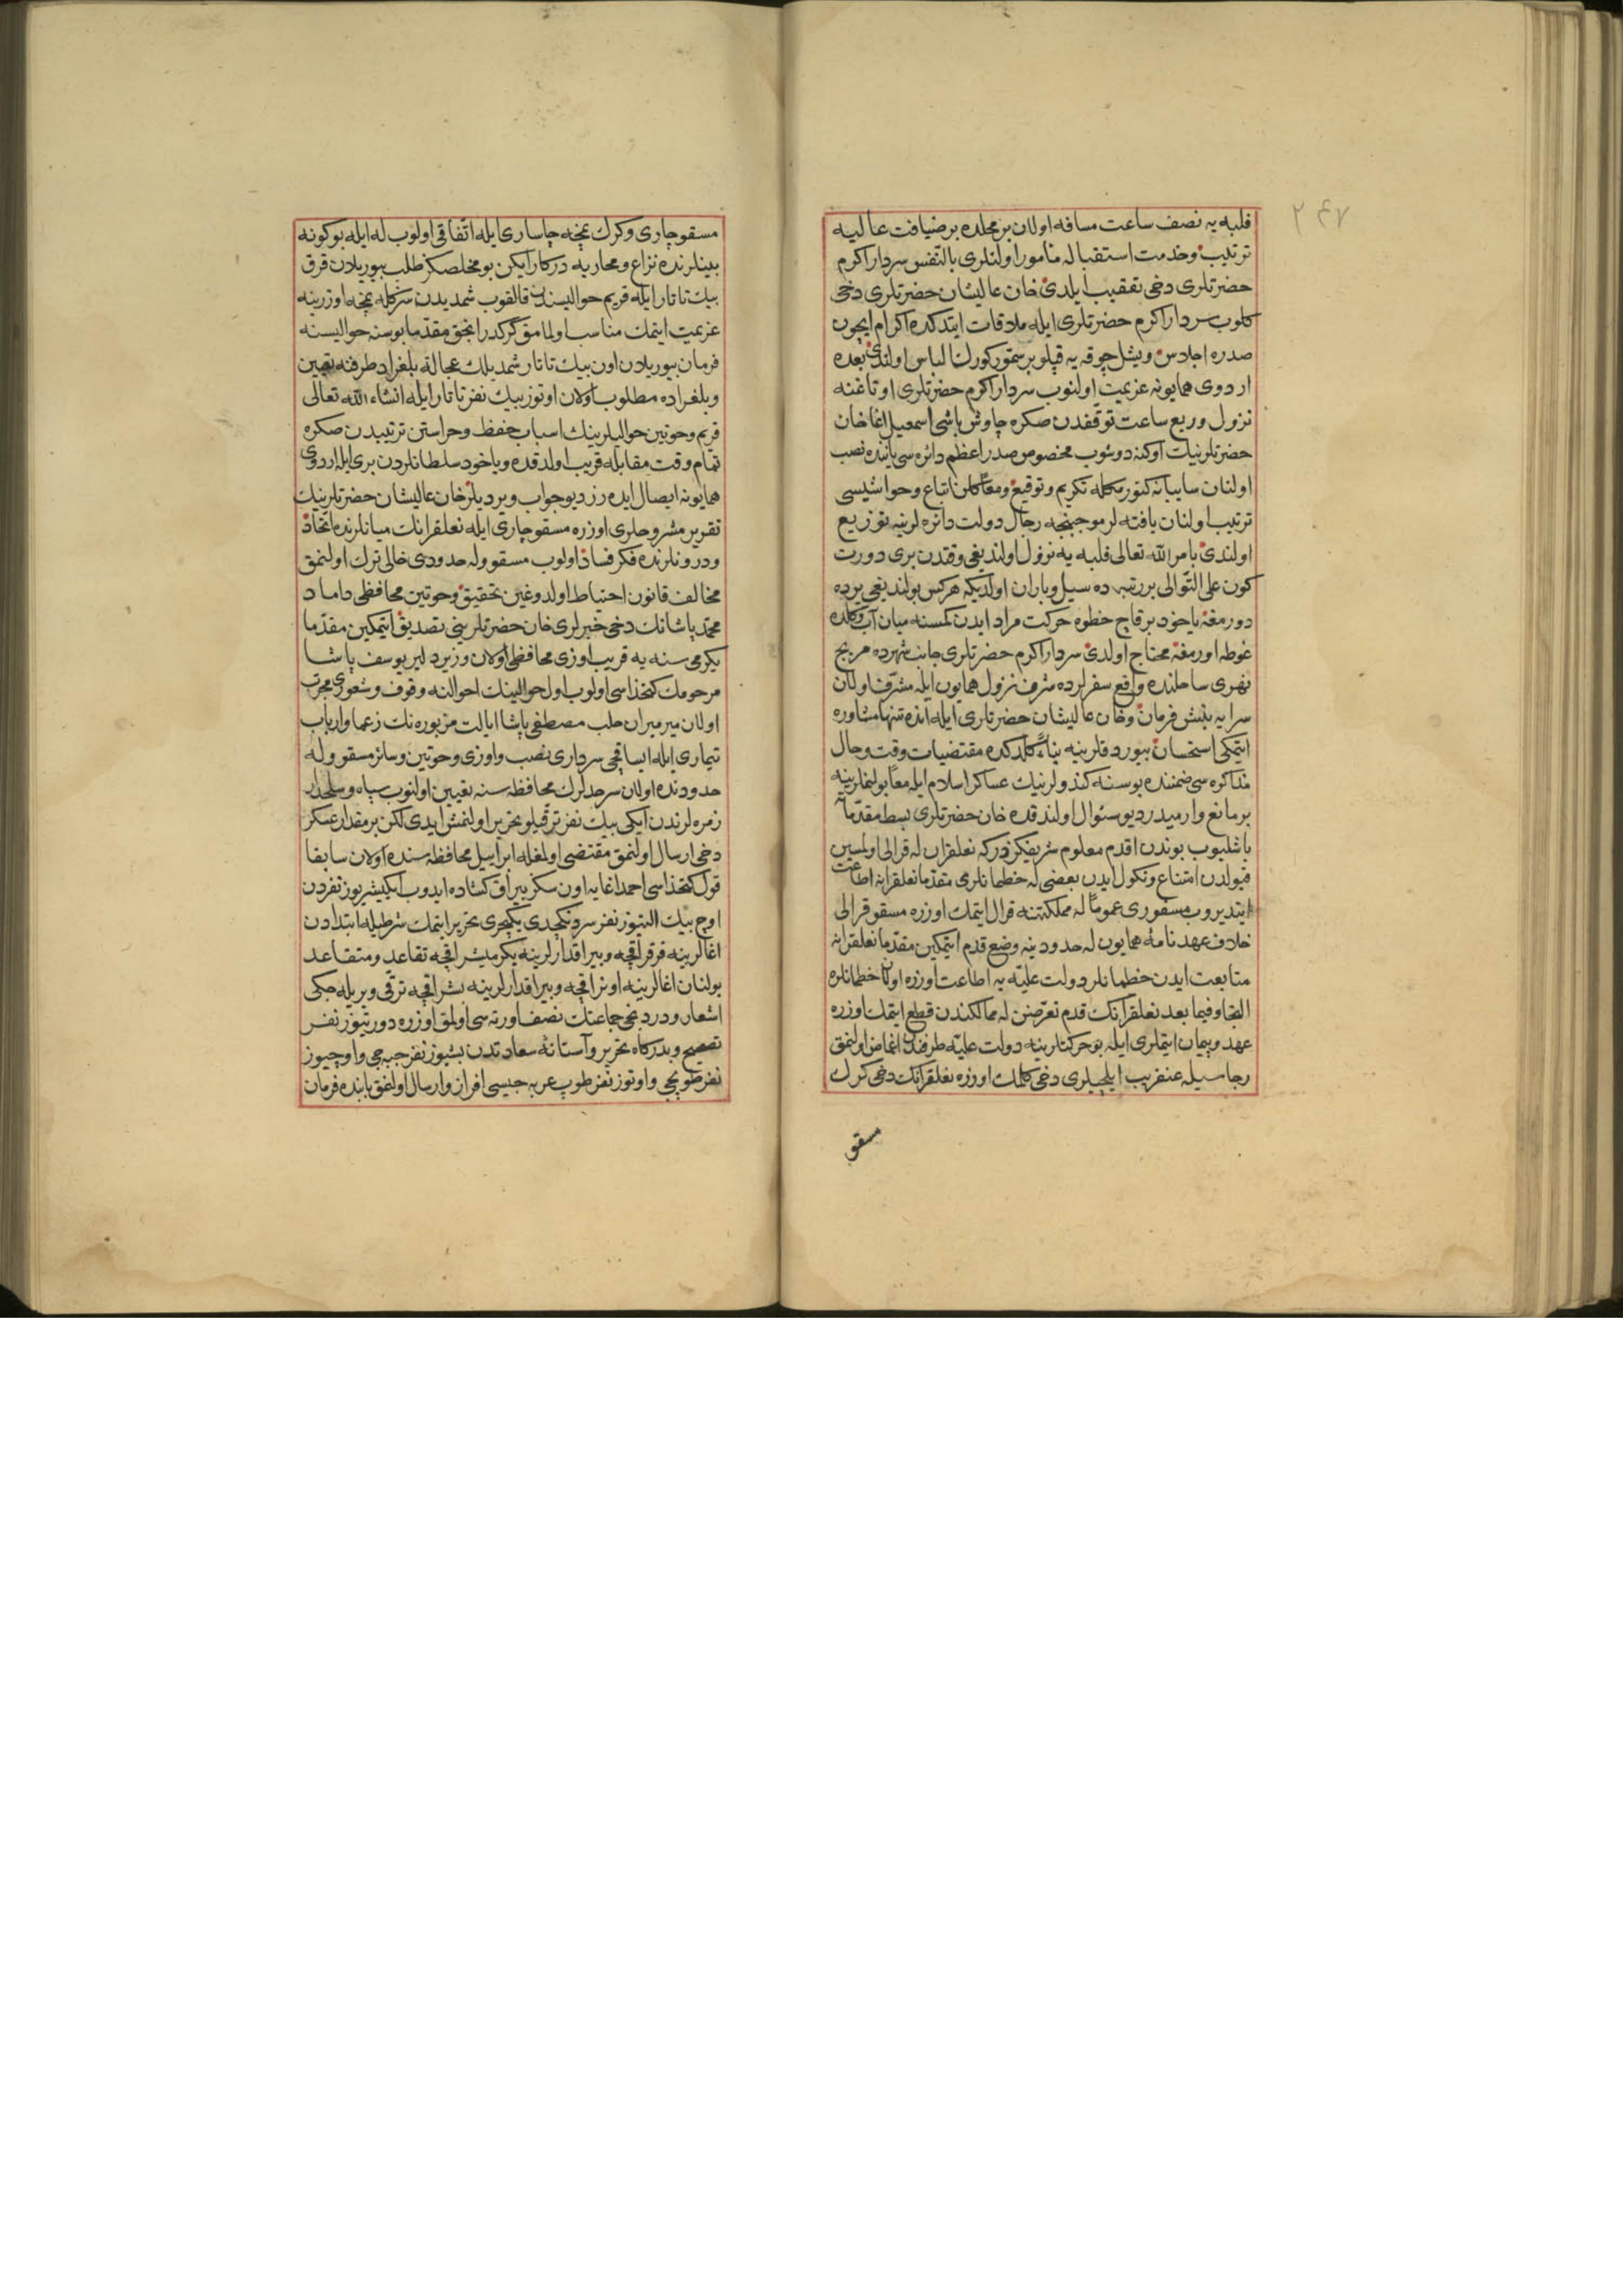 ٢٤٧
فلبه یه نصف ساعت مسافه اولان بر محلده بر ضیافت عالیه
ترتیب و خدمت استقباله مأمور اولنلری بالنفس سردار اکرم
حضرتلری دخی تعقیب ایلدی خان عالیشان حضرتلری دخی
کلوب سردار اکرم حضرتلری ایله ملاقات ایتدکده اکرام ایچون
صدره اجلاس و یشل چوقه یه قپلو بر سمور کورک الباس اولندی بعده
اردوی همایونه عزیمت اولنوب سردار اکرم حضرتلری اوتاغنه
نزول و ربع ساعت توقفدن صکره چاوش باشی اسمعیل اغا خان
حضرتلرینك اوکنه دوشوب مخصوص صدر اعظم دائره سی یاننده نصب
اولنان سایبانه کتورمکله تکریم و توقیع و معا کلن اتباع و حواشیسی
ترتیب اولنان یافته لر موجبنجه رجال دولت دائره لرینه توزیع
اولندی بامر الله تعالی فلبه یه نزول اولندیغی وقتدن بری دورت
کون علی التوالی بر رتبه ده سیل و باران اولدیکه هرکس بولندیغی یرده
دورمغه یاخود بر قاچ خطوه حرکت مراد ایدن کمسنه میان آب و کلده
غوطه اورمغه محتاج اولدی سردار اکرم حضرتلری جانب شهرده مریج
نهری ساحلنده واقع سفرلرده شرف نزول همایون ایله مشرف اولان
سرایه بنش فرمان و خان عالیشان حضرتلری ایله انده تنها مشاوره
ایتمکی استحسان بیوردقلرینه بناءً کلدکده مقتضیات وقت و حال
مذاکره سی ضمننده بو سنه کندولرینك عساکر اسلام ایله معا بولنملرینه
بر مانع وارمیدر دیو سئوال اولندقده خان حضرتلری بسط مقدماته
باشلیوب بوندن اقدم معلوم شریفکزدرکه نعلقران له قرالی اولمسین
قبولدن امتناع و نکول ایدن بعضی له خطمانلری مقدما نعلقرانه اطاعت
ایتدیروب مسقوری عموما له مملکتنه قرال ایتمك اوزره مسقو قرالی
خلاف عهدنامهٔ همایون له حدودینه وضع قدم ایتمکین مقدما نعلقرانه
متابعت ایدن خطمانلر دولت علیه یه اطاعت اوزره اولان خطمانلره
التجا و فیما بعد نعلقرانك قدم تعرضن له ممالکندن قطع ایتمك اوزره
عهد و پیمان ایتملری ایله بو حرکتلرینه دولت علیه طرفندن اغماض اولنمق
رجاسیله عنقریب ایلچیلری دخی کلمك اوزره نعلقرانك دخی کرك
مسقو
مسقو چاری و کرك نمچه چاساری ایله اتفاقی اولوب له ایله بو کونه
بینلرنده نزاع و محاربه درکار ایکن بو مخلصکز طلب بیوریلان قرق
بیك تاتار ایله قریم حوالیسندن قالقوب شمدیدن سزکله نمچه اوزرینه
عزیمت ایتمك مناسب اولمامق کرکدر انجق مقدما بوسنه حوالیسنه
فرمان بیوریلان اون بیك تاتار شمدیلك عجالة بلغراد طرفنه تعیین
و بلغراده مطلوب اولان اوتوز بیك نفر تاتار ایله انشاء الله تعالی
قریم و حوتین حوالیلرینك اسباب حفظ و حراستن ترتیبدن صکره
تمام وقت مقابله قریب اولدقده و یاخود سلطانلردن بری ایله اردوی
همایونه ایصال ایده رز دیو جواب ویردیلر خان عالیشان حضرتلرینك
تقریر مشروحلری اوزره مسقو چاری ایله نعلقرانك میانلرنده اتحاد
و درونلرنده فکر فساد اولوب مسقو و له حدودی خالی ترك اولنمق
مخالف قانون احتیاط اولدوغین تحقیق و حوتین محافظی داماد
محمد پاشانك دخی خبرلری خان حضرتلرینی تصدیق ایتمکین مقدما
یکرمی سنه یه قریب اوزی محافظی اولان وزیر دلیر یوسف پاشا
مرحومك کتخداسی اولوب اول حوالینك احوالنه وقوف و شعوری مجرب
اولان میرمیران حلب مصطفی پاشا ایالت مزبوره نك زعما و ارباب
تیماری ایله ایساقچی سرداری نصب و اوزی و حوتین و سائر مسقو و له
حدودنده اولان سرحدلرك محافظه سنه تعیین اولنوب سپاه و سلحدار
زمره لرندن ایکی بیك نفر ترقیلو تحریر اولنمش ایدی لکن بر مقدار عسکر
دخی ارسال اولنمق مقتضی اولمغله ابراییل محافظه سنده اولان سابقا
قول کتخداسی احمد اغایه اون سکز بیراق کشاده ایدوب ایکیشر یوز نفردن
اوچ بیك التیوز نفر سردنکچدی یکیچری تحریر ایتمك شرطیله ابتدادن
اغالرینه قرقر اقچه و بیراقدارلرینه یکرمیشر اقچه تقاعد و متقاعد
بولنان اغالرینه اونر اقچه و بیراقدارلرینه بشر اقچه ترقی ویریله جکی
اشعار و دردنجی جماعتك نصف اورته سی اولمق اوزره دورتیوز نفر
تصحیح و بدرکاه تحریر و آستانهٔ سعادتدن بشیوز نفر جبه جی و اوچیوز
نفر طوپچی و اوتوز نفر طوپ عربه جیسی افراز و ارسال اولنمق بابنده فرمان